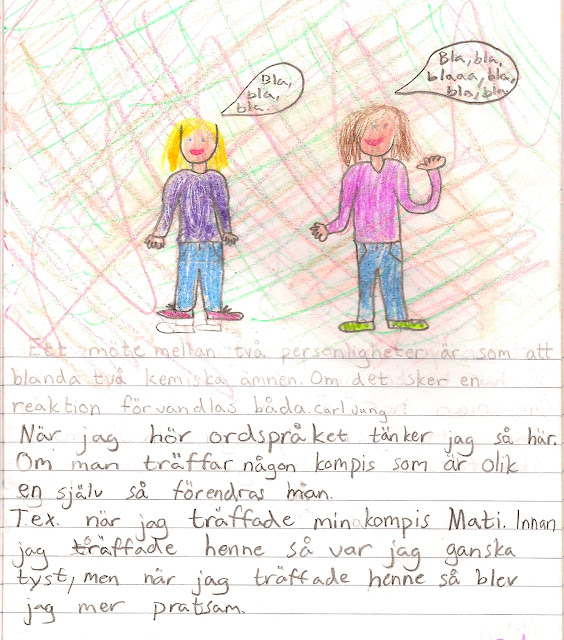 Bla,
bla,
bla
Bla, bla,
blaaa, bla,
bla, bla
Ett möte mellan två personligheter är som att
blanda två kemiska ämnen. Om det sker en
reaktion förvandlas båda. Carl Jung
När jag hör ordspråket tänker jag så här.
Om man träffar någon kompis som är olik
en själv så förendras man.
Tex. när jag träffade min kompis Mati. Innan
jag träffade henne så var jag ganska
tyst, men när jag träffade henne så blev
jag mer pratsam.